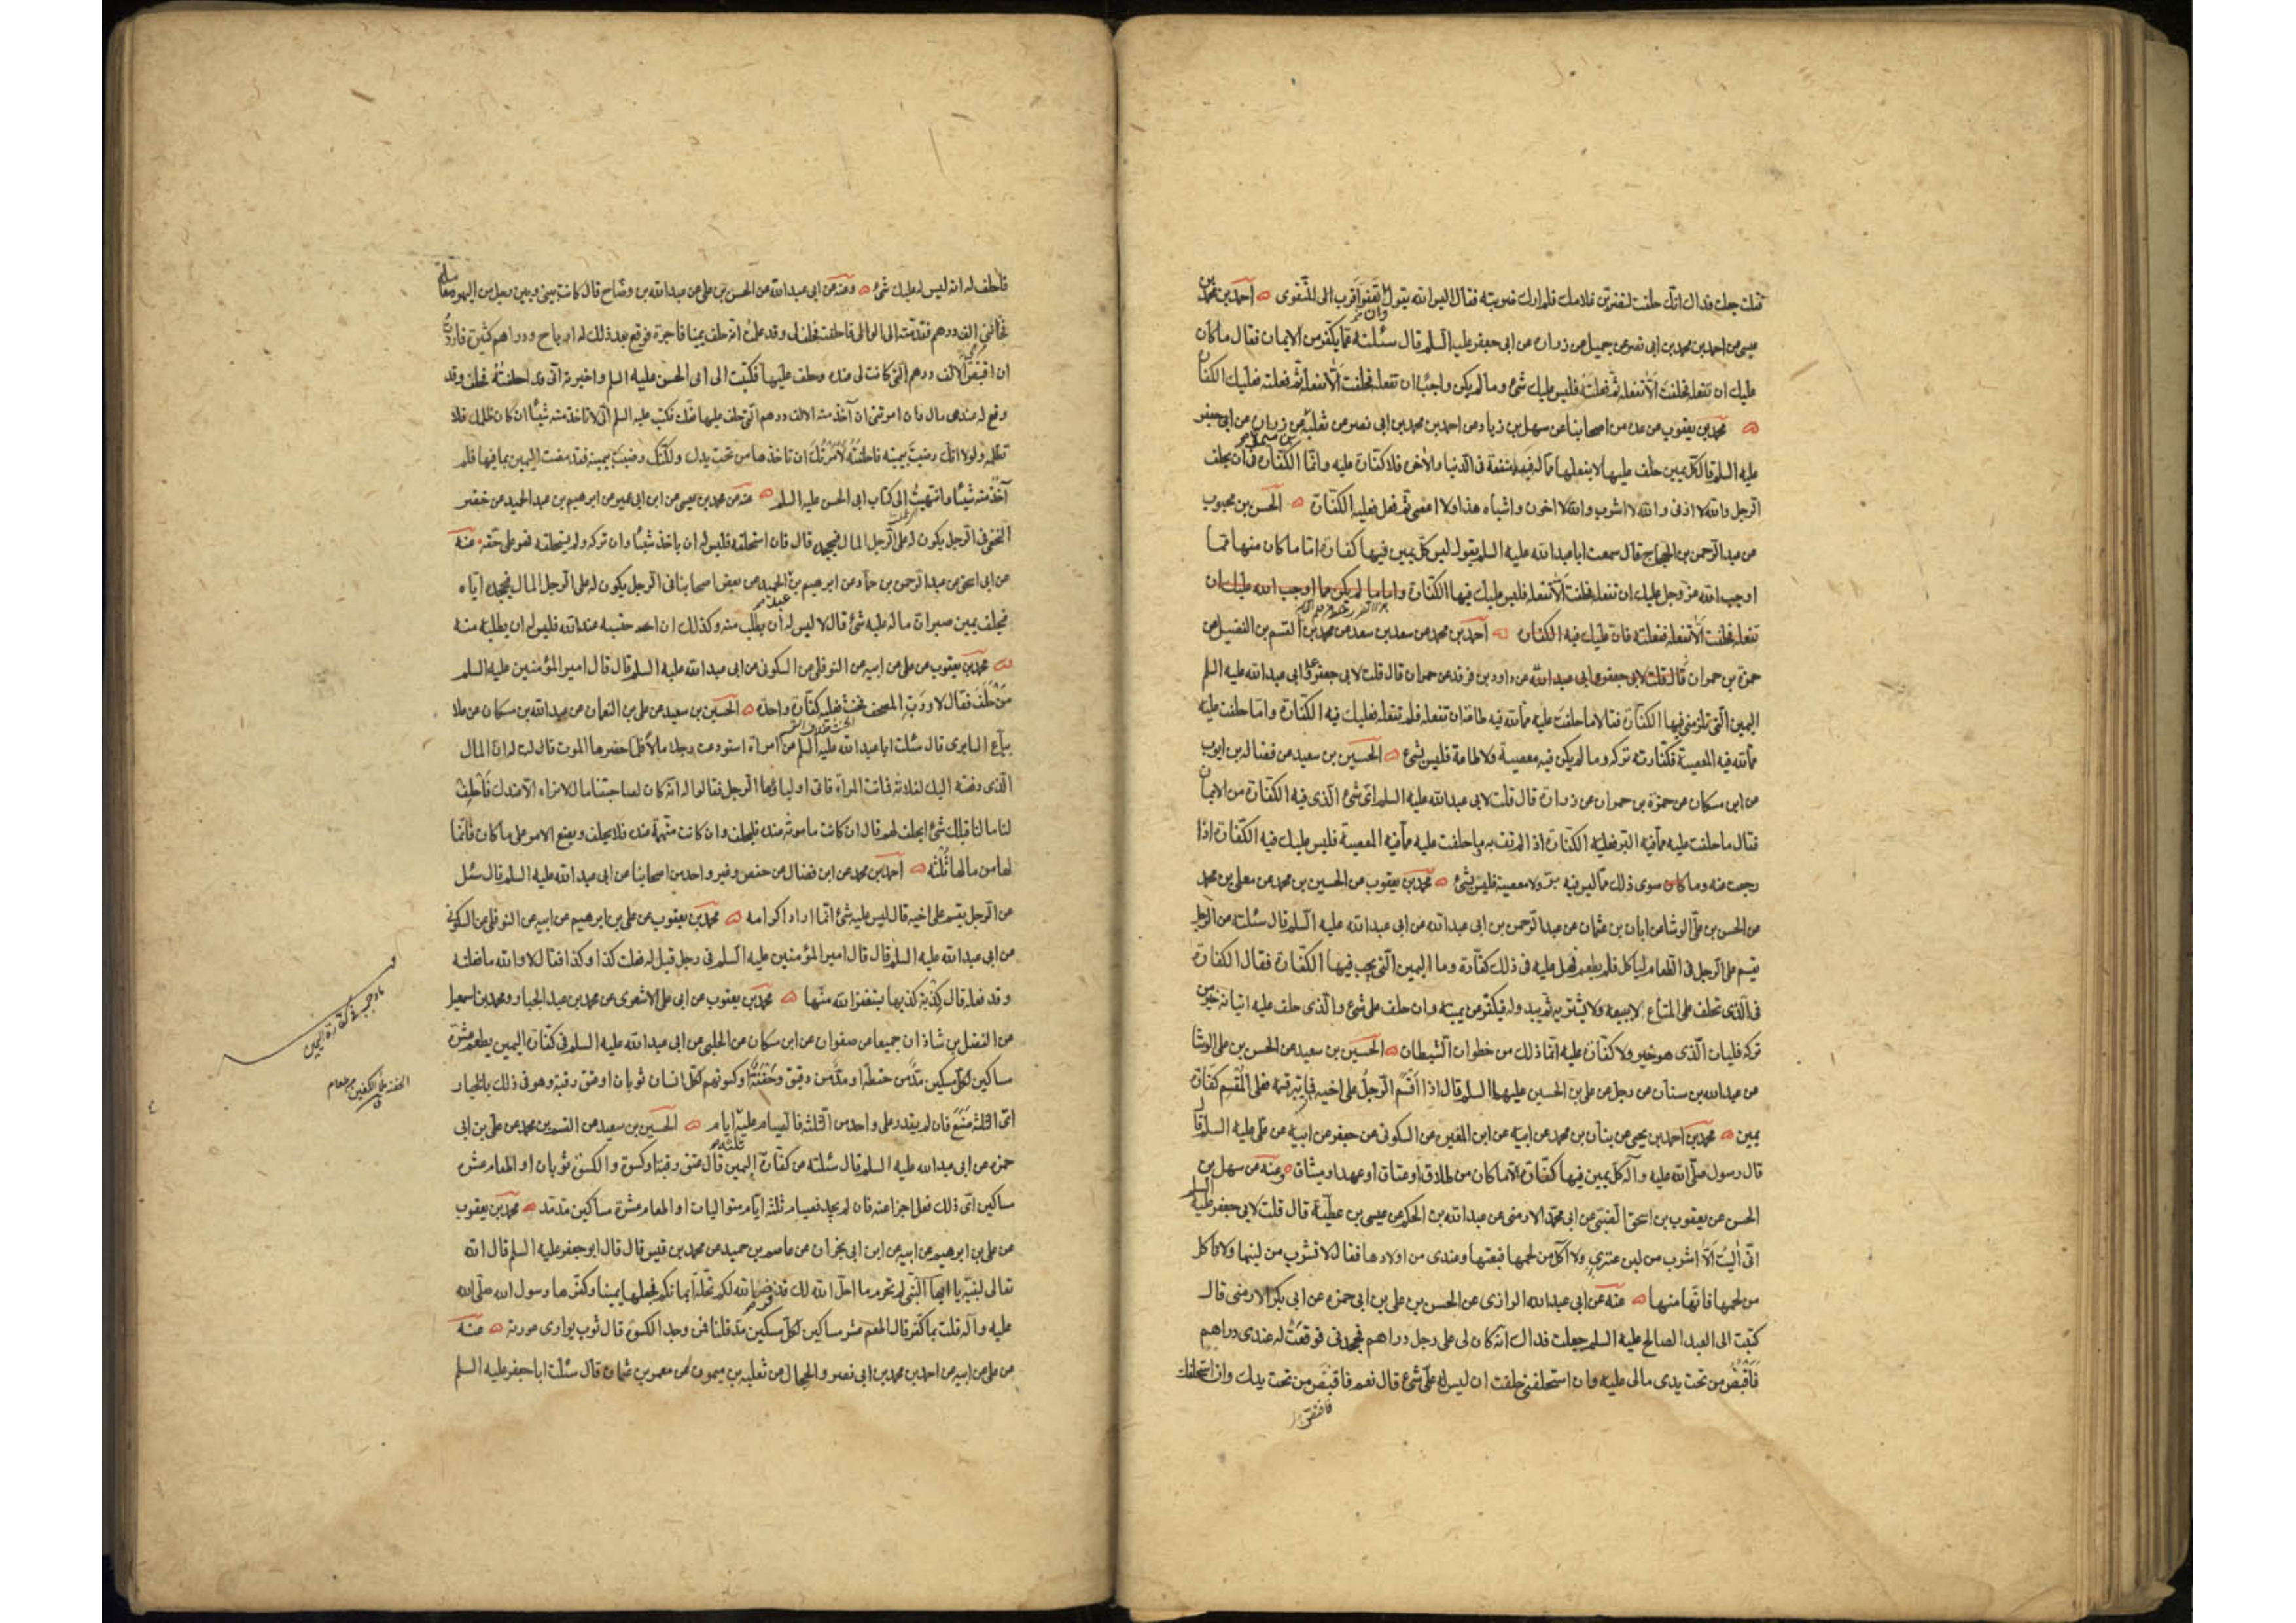 قلت جعلت فداك انك حلفت لتضربن غلامك فلم ارك ضربته فقال اليس الله يقول وان تعفوا اقرب للتقوى احمد بن محمد بن
عيسى عن احمد بن محمد بن ابى نصر عن جميل عن زرارة عن ابى جعفر عليه السلم قال سئلته عما يكفر من الايمان فقال ما كان
عليك ان تفعله فحلفت الا تفعله ثم فعلته فليس عليك شئ وما لم يكن واجبا ان تفعله فحلفت الا تفعله ثم فعلته فعليك الكفارة
محمد بن يعقوب عن عدة من اصحابنا عن سهل بن زياد عن احمد بن محمد بن ابى نصر عن ثعلبة بن ميمون عن زرارة عن ابى جعفر
عليه السلم قال كل يمين حلف عليها لا يفعلها مما له فيه منفعة فى الدنيا والاخرة فلا كفارة عليه وانما الكفارة فى ان يحلف
الرجل والله لا ازنى والله لا اشرب والله لا اخون واشباه هذا ولا اعصى ثم فعل فعليه الكفارة الحسن بن محبوب
عن عبد الرحمن بن الحجاج قال سمعت ابا عبد الله عليه السلم يقول ليس كل يمين فيها كفارة اما ما كان منها مما
اوجب الله عز وجل عليك ان تفعله فحلفت الا تفعله فليس عليك فيها الكفارة واما ما لم يكن مما اوجب الله عليك ان
تفعله فحلفت الا تفعله ففعلته فان عليك فيه الكفارة احمد بن محمد عن سعد بن سعد عن محمد بن القسم بن الفضيل عن
حمزة بن حمران قال قلت لابى جعفر وابى عبد الله عن داود بن فرقد عن حمران قال قلت لابى جعفر وابى عبد الله عليه السلم
اليمين التى تلزمنى فيها الكفارة فقالا ما حلفت عليه مما لله فيه طاعة ان تفعله فلم تفعله فعليك فيه الكفارة وما حلفت عليه
مما لله فيه المعصية فكفارته تركه وما لم يكن فيه معصية ولا طاعة فليس بشئ الحسين بن سعيد عن فضالة بن ايوب
عن ابن مسكان عن حمزة بن حمران عن زرارة قال قلت لابى عبد الله عليه السلم اى شئ الذى فيه الكفارة من الايمان
فقال ما حلفت عليه مما فيه البر فعليه الكفارة اذا لم تف به وما حلفت عليه مما فيه المعصية فليس عليك فيه الكفارة اذا
رجعت عنه وما كان سوى ذلك مما ليس فيه بر ولا معصية فليس بشئ محمد بن يعقوب عن الحسين بن محمد عن معلى بن محمد
عن الحسن بن على الوشا عن ابان بن عثمان عن عبد الرحمن بن ابى عبد الله عن ابى عبد الله عليه السلم قال سئلته عن الرجل
يقسم على الرجل فى الطعام لياكل فلم يطعم فهل عليه فى ذلك كفارة وما اليمين التى يجب فيها الكفارة فقال الكفارة
فى الذى تحلف على المتاع الا يبيعه ولا يشتريه ثم يبدو له فيكفر عن يمينه وان حلف على شئ والذى حلف عليه اتيانه خير من
تركه فليات الذى هو خير ولا كفارة عليه انما ذلك من خطوات الشيطان الحسين بن سعيد عن الحسن بن على الوشا
عن عبد الله بن سنان عن رجل عن على بن الحسين عليهما السلم قال اذا اقسم الرجل على اخيه فلم يبر قسمه فعلى المقسم كفارة
يمين محمد بن احمد بن يحيى عن بنان بن محمد عن ابيه عن ابن المغيرة عن السكونى عن جعفر عن ابيه عن على عليه السلم قال
قال رسول صلى الله عليه وآله كل يمين فيها كفارة الا ما كان من طلاق او عتاق او عهد او ميثاق وعنه عن سهل بن
الحسن عن يعقوب بن اسحق الضبى عن ابى محمد الارمنى عن عبد الله بن الحكم عن عيسى بن عطية قال قلت لابى جعفر عليه السلم
انى آليت الا اشرب من لبن عنزى ولا آكل من لحمها فبعتها وعندى من اولادها فقال لا تشرب من لبنها ولا تاكل
من لحمها فانها منها عنه عن ابى عبد الله الرازى عن الحسن بن على بن ابى حمزة عن ابى بكر الارمنى قال
كتبت الى العبد الصالح عليه السلم جعلت فداك انه كان لى على رجل دراهم فجحدنى فوقعت له عندى دراهم
فاقبض من تحت يدى مالى عليه وان استحلفنى حلفت ان ليس له على شئ قال نعم فاقبض من تحت يدك وان استحلفك
فاحلف له انه ليس له عليك شئ وعنه عن ابى عبد الله عن الحسن بن على عن عبد الله بن وضاح قال كانت بينى وبين رجل من اليهود معاملة
فخاننى الف درهم فقدمته الى الوالى فاحلفته فحلف وقد علمت انه حلف يمينا فاجرة فوقع بعد ذلك له ارباح ودراهم كثيرة فاردت
ان اقبض الالف درهم التى كانت لى عنده وحلف عليها فكتبت الى ابى الحسن عليه السلم واخبرته انى قد احلفته فحلف وقد
وقع له عندى مال فان امرتنى ان آخذ منه الالف درهم التى حلف عليها فعلت فكتب عليه السلم لا تاخذ منه شيئا ان كان ظلمك فلا
تظلمه ولولا انك رضيت بيمينه فاحلفته لامرتك ان تاخذها من تحت يدك ولكنك رضيت بيمينه فقد مضت اليمين بما فيها فلم
آخذ منه شيئا وانتهيت الى كتاب ابى الحسن عليه السلم عنه عن محمد بن عيسى عن ابن ابى عمير عن ابرهيم بن عبد الحميد عن خضر
النخعى فى الرجل يكون له على الرجل المال فيجحده قال فان استحلفه فليس له ان ياخذ شيئا وان تركه ولم يستحلفه فهو على حقه عنه
عن ابى اسحق عن عبد الرحمن بن حماد عن ابرهيم بن عبد الحميد عن بعض اصحابنا فى الرجل يكون له على الرجل المال فيجحده اياه
فيحلف يمين صبر ان ماله عليه شئ قال لا ليس له ان يطلب منه وكذلك ان احتسبه عند الله فليس له ان يطلبه منه
محمد بن يعقوب عن على عن ابيه عن النوفلى عن السكونى عن ابى عبد الله عليه السلم قال قال امير المؤمنين عليه السلم
من حلف فقال لا ورب المصحف فحنث فعليه كفارة واحدة الحسين بن سعيد عن على بن النعمان عن عبد الله بن مسكان عن علا
بياع السابرى قال سئلت ابا عبد الله عليه السلم عن امرأة استودعت رجلا مالا فلما حضرها الموت قالت له ان المال
الذى دفعته اليك لفلانة فماتت المرأة فاتى اولياؤها الرجل فقالوا له انه كان لصاحبتنا مال لا نراه الا عندك فاحلف
لنا ما لنا قبلك شئ ايحلف لهم قال ان كانت مامونة عنده فليحلف وان كانت متهمة عنده فلا يحلف ويضع الامر على ما كان فانما
لها من مالها ثلثه احمد بن محمد عن ابن فضال عن حفص وغير واحد من اصحابنا عن ابى عبد الله عليه السلم قال سئل
عن الرجل يقسم على اخيه قال ليس عليه شئ انما اراد اكرامه محمد بن يعقوب عن على بن ابرهيم عن ابيه عن النوفلى عن السكونى
عن ابى عبد الله عليه السلم قال قال امير المؤمنين عليه السلم فى رجل قيل له فعلت كذا وكذا فقال لا والله ما فعلته
وقد فعله قال كذبة كذبها يستغفر الله منها محمد بن يعقوب عن ابى على الاشعرى عن محمد بن عبد الجبار ومحمد بن اسمعيل
عن الفضل بن شاذان جميعا عن صفوان عن ابن مسكان عن الحلبى عن ابى عبد الله عليه السلم فى كفارة اليمين يطعم عشرة
مساكين لكل مسكين مد من حنطة او مد من دقيق وحفنة او كسوتهم لكل انسان ثوبان او عتق رقبة وهو فى ذلك بالخيار
اى الثلثة صنع فان لم يقدر على واحد من الثلثة فالصيام عليه ثلثة ايام الحسين بن سعيد عن القسم بن محمد عن على بن ابى
حمزة عن ابى عبد الله عليه السلم قال سئلته عن كفارة اليمين قال عتق رقبة او كسوة والكسوة ثوبان او اطعام عشرة
مساكين اى ذلك فعل اجزا عنه فان لم يجد فصيام ثلثة ايام متواليات او اطعام عشرة مساكين مد مد محمد بن يعقوب
عن على بن ابرهيم عن ابيه عن ابن ابى نجران عن عاصم بن حميد عن محمد بن قيس قال قال ابو جعفر عليه السلم قال الله
تعالى لنبيه يا ايها النبى لم تحرم ما احل الله لك قد فرض الله لكم تحلة ايمانكم فجعلها يمينا وكفرها رسول الله صلى الله
عليه وآله قلت بما كفر قال اطعم عشر مساكين لكل مسكين مد قلنا فمن وجد الكسوة قال ثوب يوارى عورته عنه
عن على عن ابيه عن احمد بن محمد بن ابى نصر والحجال عن ثعلبة بن ميمون عن معمر بن عثمان قال سئلت ابا جعفر عليه السلم